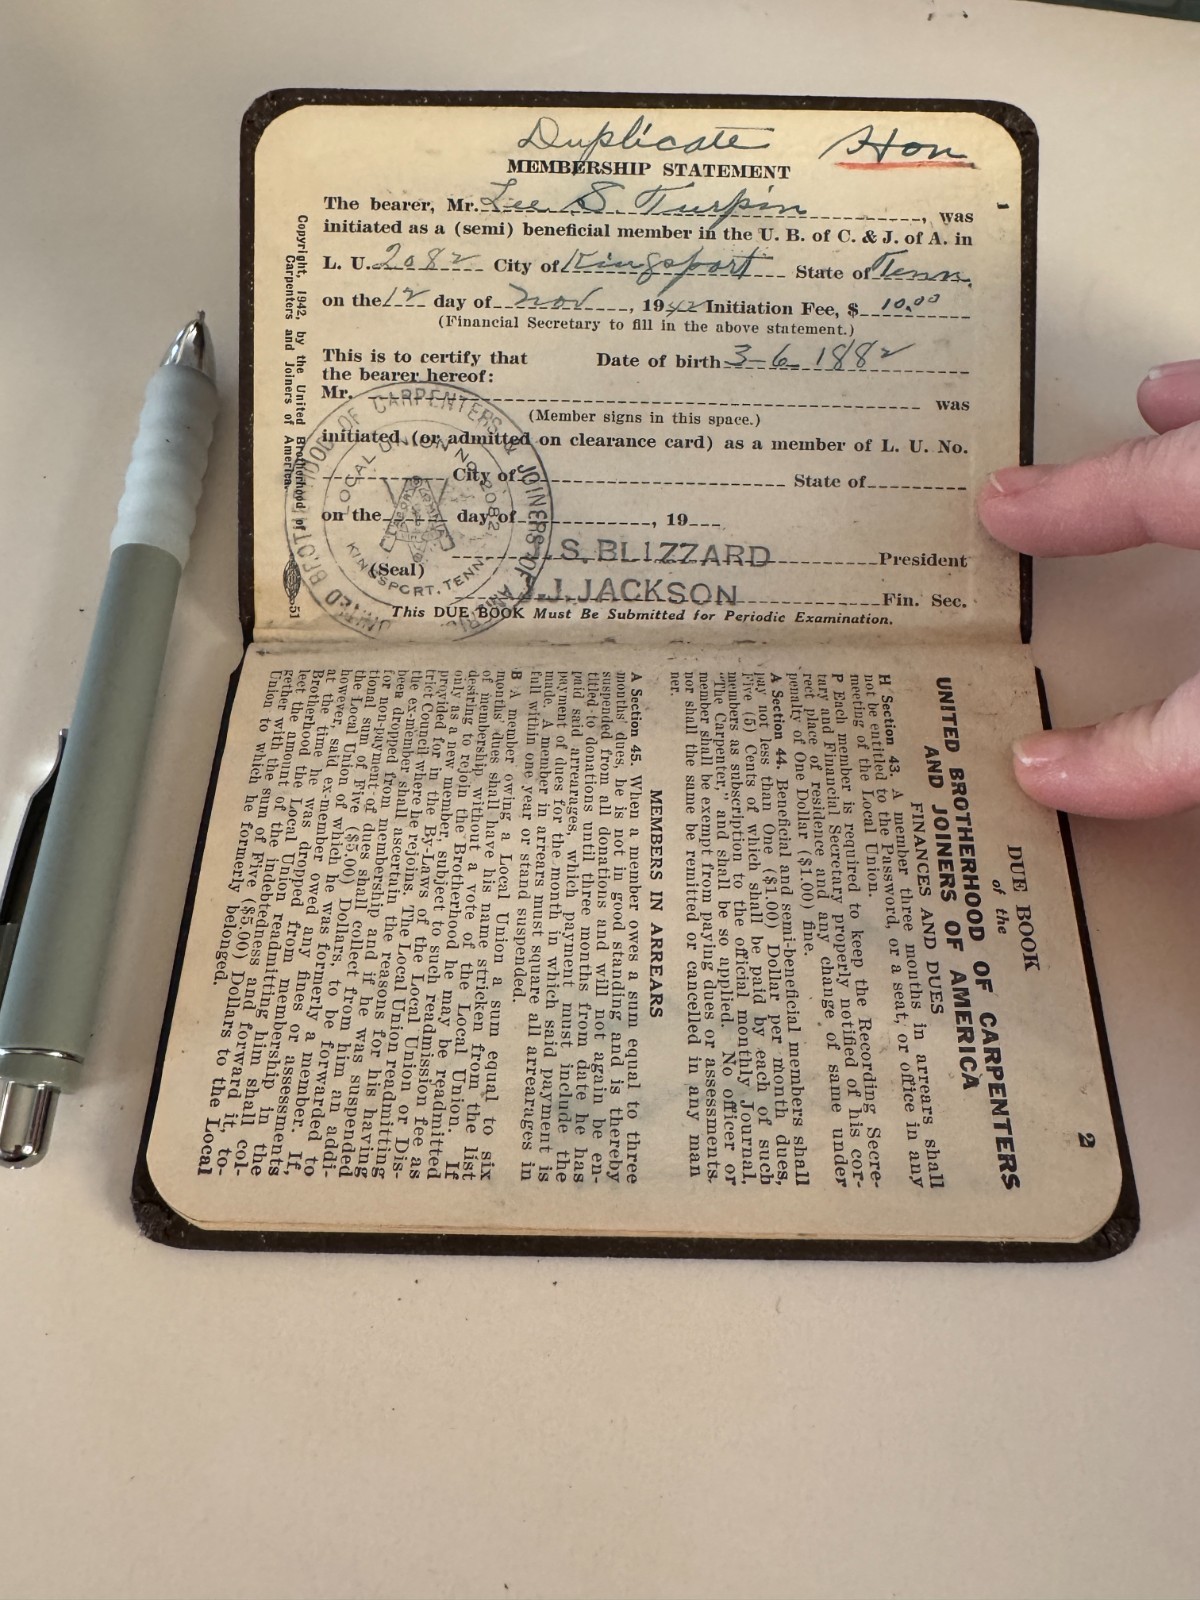 Duplicate Hon
MEMBERSHIP STATEMENT
1
The bearer, Mr. Lee S. Turpin, was
initiated as a (semi) beneficial member in the U. B. of C. & J. of A. in
L. U. 2082 City of Kingsport State of Tenn.
on the 12 day of Nov, 1942 Initiation Fee, $ 10.00
(Financial Secretary to fill in the above statement.)
This is to certify that Date of birth 3-6-1882
the bearer hereof:
Mr. was
(Member signs in this space.)
initiated (or admitted on clearance card) as a member of L. U. No.
City of State of
on the day of , 19
S. BLIZZARD President
(Seal)
J. JACKSON Fin. Sec.
This DUE BOOK Must Be Submitted for Periodic Examination.
Copyright, 1942, by the United Brotherhood of
Carpenters and Joiners of America.
51
UNITED BROTHERHOOD OF CARPENTERS & JOINERS OF AMERICA
LOCAL UNION NO. 2082
KINGSPORT, TENN.
2
DUE BOOK
of the
UNITED BROTHERHOOD OF CARPENTERS
AND JOINERS OF AMERICA
FINANCES AND DUES
H Section 43. A member three months in arrears shall
not be entitled to the Password, or a seat, or office in any
meeting of the Local Union.
P Each member is required to keep the Recording Secre-
tary and Financial Secretary properly notified of his cor-
rect place of residence and any change of same under
penalty of One Dollar ($1.00) fine.
A Section 44. Beneficial and semi-beneficial members shall
pay not less than One ($1.00) Dollar per month dues,
Five (5) Cents of which shall be paid by each of such
members as subscription to the official monthly Journal,
"The Carpenter," and shall be so applied. No officer or
member shall be exempt from paying dues or assessments,
nor shall the same be remitted or cancelled in any man
ner.
MEMBERS IN ARREARS
A Section 45. When a member owes a sum equal to three
months' dues, he is not in good standing and is thereby
suspended from all donations and will not again be en-
titled to donations until three months from date he has
paid said arrearages, which payment must include the
payment of dues for the month in which said payment is
made. A member in arrears must square all arrearages in
full within one year or stand suspended.
B A member owing a Local Union a sum equal to six
months' dues shall have his name stricken from the list
of membership without a vote of the Local Union. If
desiring to rejoin the Brotherhood he may be readmitted
only as a new member, subject to such readmission fee as
provided for in the By-Laws of the Local Union or Dis-
trict Council where he rejoins. The Local Union readmitting
the ex-member shall ascertain the reasons for his having
been dropped from membership and if he was suspended
for non-payment of dues shall collect from him an addi-
tional sum of Five ($5.00) Dollars, to be forwarded to
the Local Union of which he was formerly a member. If,
however, said ex-member owed any fines or assessments
at the time he was dropped from membership in the
Brotherhood the Local Union readmitting him shall col-
lect the amount of the indebtedness and forward it, to-
gether with the sum of Five ($5.00) Dollars to the Local
Union to which he formerly belonged.